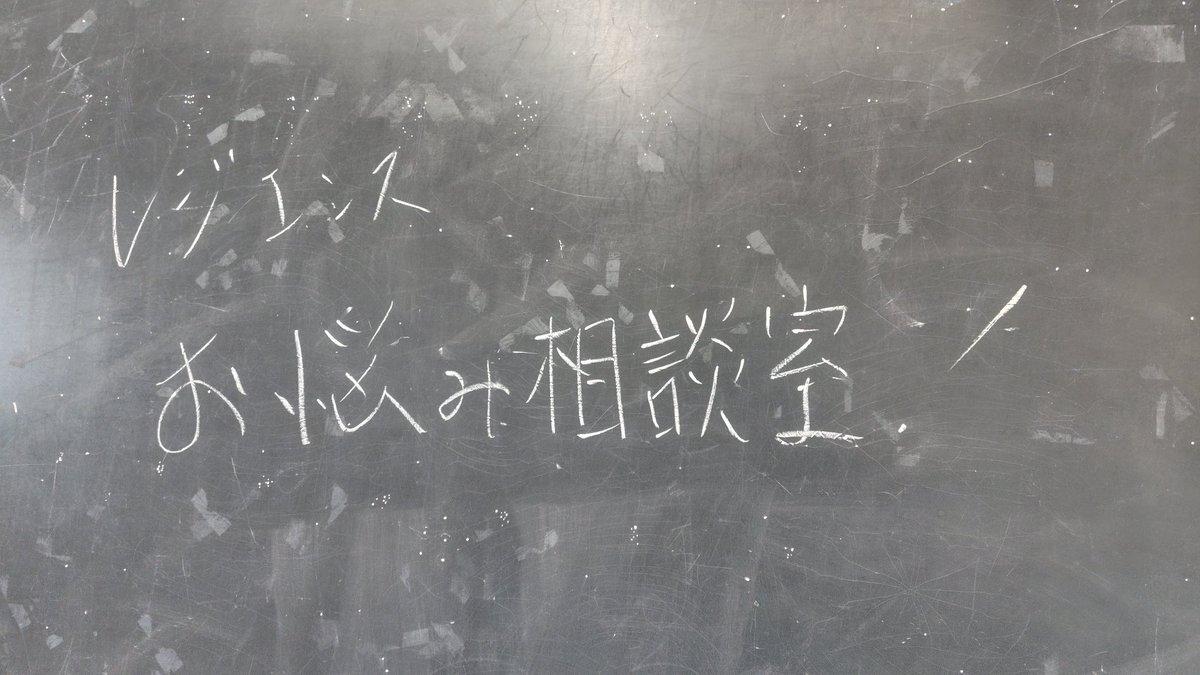 レジエンス
お悩み相談室！